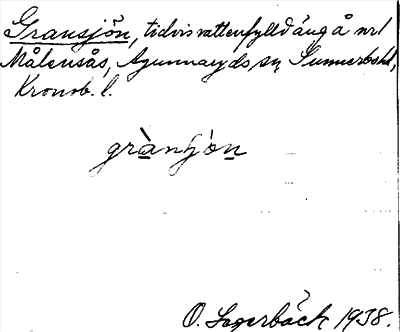 Gransjön, tidvis vattenfylld äng å nr 1
Målensås, Agunnaryds sn, Sunnerbo hd,
Kronob. l.
grànʃòn
O. Segerbäck 1938.